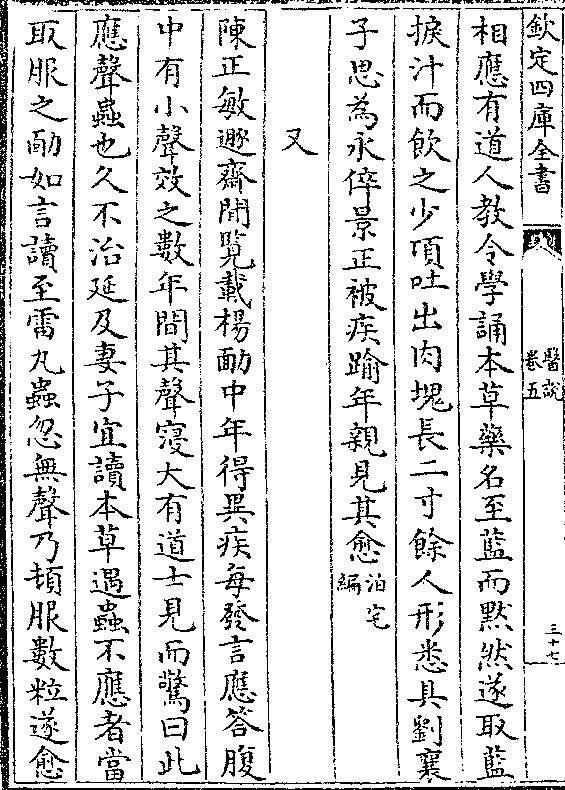 欽定四庫全書
醫說
卷五
三十七
相應有道人教令學誦本草藥名至藍而黙然遂取藍
捩汁而飲之少項吐出肉塊長二寸餘人形悉具劉襄
子思為永倅景正被疾踰年親見其愈泊宅編
又
陳正敏遯齋閒覽載楊勔中年得異疾每發言應答腹
中有小聲效之數年間其聲寖大有道士見而驚曰此
應聲蟲也久不治延及妻子宜讀本草遇蟲不應者當
取服之勔如言讀至雷丸蟲忽無聲乃頓服數粒遂愈